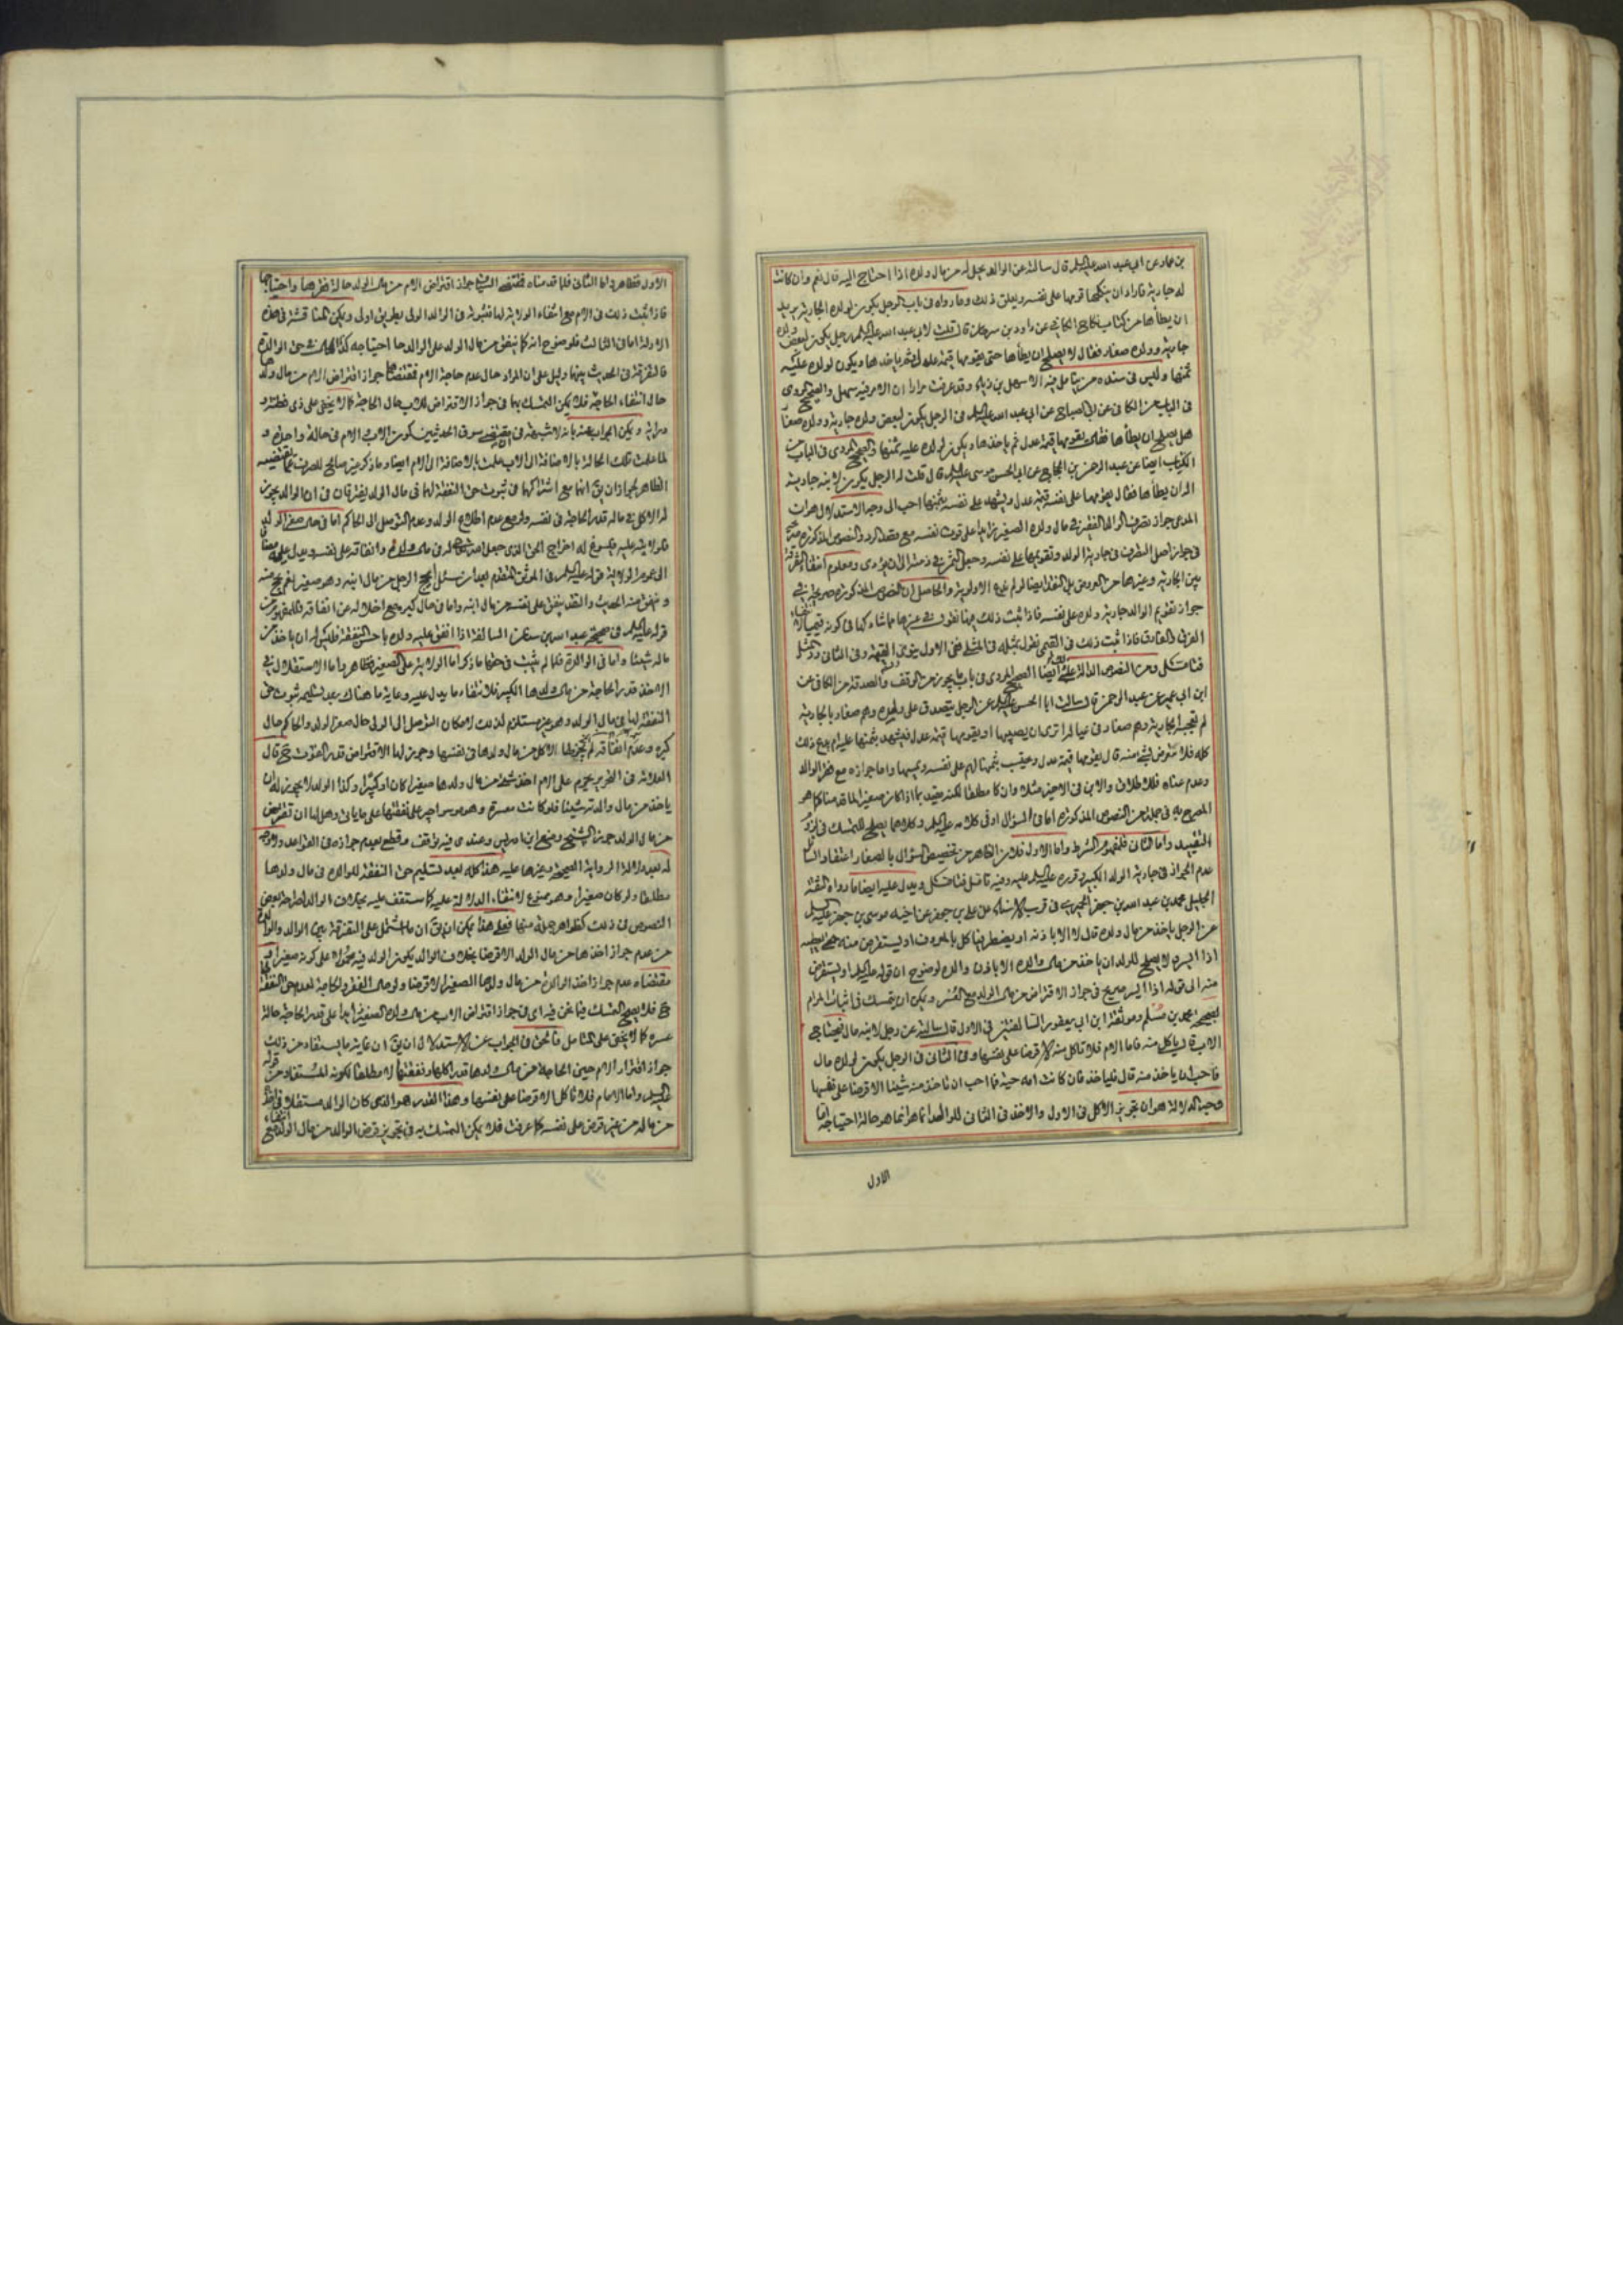 بن حماد عن ابي عبد الله عليه السلام قال سالته عن الوالد يحل له من مال ولده اذا احتاج اليه قال نعم وان كانت
له جارية فاراد ان ينكحها قومها على نفسه ويعلن ذلك وما رواه في باب الرجل يكون لولده الجارية يريد
ان يطأها من كتاب نكاح الكافي عن داود بن سرحان قال قلت لابي عبد الله عليه السلام رجل يكون لبعض ولده
جارية وولده صغار فقال لا يصلح ان يطأها حتى يقومها قيمة عدل ثم ياخذها ويكون لولده عليه
ثمنها وليس في سنده من يتامل فيه الا سهل بن زياد وقد عرفت مرارا ان الامر فيه سهل والصحيح المروى
في الباب من الكافي عن ابي الصباح عن ابي عبد الله عليه السلام في الرجل يكون لبعض ولده جارية وولده صغار
هل يصلح ان يطأها فقال يقومها قيمة عدل ثم ياخذها ويكون لولده عليه ثمنها والصحيح المروى في الباب من
الكتاب ايضا عن عبد الرحمن بن الحجاج عن ابي الحسن موسى عليه السلام قال قلت له الرجل يكون لابنه جارية
اله ان يطأها فقال يقومها على نفسه قيمة عدل ويشهد على نفسه بثمنها احب الى وجه الاستدلال هو ان
المدعى جواز تصرف الوالد الفقير في مال ولده الصغير زايدا على قوت نفسه مع قصد الرد والنصوص المذكورة
في جواز اصل التصرف في جارية الولد وتقويمها على نفسه وجعل الثمن في ذمته الى ان يؤدى ومعلوم انتفاء الفرق
بين الجارية وغيرها من العروض بل النقد ايضا لو لم ندع الاولوية والحاصل ان النصوص المذكورة صريحة في
جواز تقويم الوالد جارية ولده على نفسه فاذا ثبت ذلك فيها نقول في غيرها مما شاركها في كونه قيميا
الفرق الفارق فاذا ثبت ذلك في القيمى نقول بمثله في المثلى ففي الاول يقوم القيمة وفي الثانى المثل
ومن النصوص الدالة عليه ايضا الصحيح المروى في باب ما يجوز من الوقف والصدقة من الكافي عن
ابن ابي عمير عن عبد الرحمن قال سالت ابا الحسن عليه السلام عن الرجل يتصدق على ولده وهم صغار بالجارية
ثم تعجبه الجارية وهم صغار في عياله اترى ان يصيبها او يقومها قيمة عدل فيشهد بثمنها عليه ام يدع ذلك
كله فلا يتعرض لشئ منه قال يقومها قيمة عدل ويحتسب بثمنها لهم على نفسه ويمسها واما جوازه مع فقر الوالد
وعدم غناه فلاطلاق والابن في الاخير مثلا وان كان مطلقا لكنه مقيد بما اذا كان صغيرا لما قدمنا كما هو
المصرح به في جملة من النصوص المذكورة اما في السؤال او في كلامه عليه السلام وكلاهما يصلح للتمسك في
التقييد واما الثانى فلمفهوم الشرط واما الاول فلان الظاهر من تخصيص السؤال بالصغار اعتقاد السائل
عدم الجواز في جارية الولد الكبير وقرره عليه السلام عليه وفيه تامل ويدل عليه ايضا ما رواه الثقة
الجليل محمد بن عبد الله بن جعفر الحميرى في قرب الاسناد عن علي بن جعفر عن اخيه موسى بن جعفر عليه السلام
عن الرجل ياخذ من مال ولده قال لا الا باذنه او يضطر فياكل بالمعروف او يستقرض منه حتى يعطيه
اذا ايسر ولا يصلح للولد ان ياخذ من مال والده الا باذن والده لوضوح ان قوله عليه السلام او يستقرض
منه الى قوله اذا ايسر صريح في جواز الاقتراض من مال الولد مع العسر ويمكن ان يتمسك في اثبات المرام
بصحيح محمد بن مسلم وموثقة ابن ابي يعفور السالفتين في الاول قال سالته عن رجل لابنه مال فيحتاج
الاب قال ياكل منه فاما الام فلا تاكل منه الا قرضا على نفسها وفي الثانى في الرجل يكون لولده مال
فاحب ان ياخذ منه قال فلياخذ فان كانت امه حية فما احب ان تاخذ منه شيئا الا قرضا على نفسها
وجه الدلالة هو ان تجويز الاكل في الاول والاخذ في الثانى للوالد انما هو حالة احتياجه اما
الاول
الاول فظاهر واما الثانى فلما قدمناه جواز اقتراض الام من مال الولد حالة فقرها واحتياجها
فاذا ثبت ذلك في الام مع انتفاء الولاية لها فثبوته في الوالد الولى بطريق اولى ويمكن المناقشة في هذه
الاولوية اما في الثالث فلوضوح انه كما ينفق من مال الولد على الوالد حال احتياجه كذا في حق الوالدة
فالتفرقة في الحديث بينهما دليل على ان المراد حال عدم حاجة الام فمقتضاها جواز اقتراض الام من مال ولدها
حال انتفاء الحاجة فلا يمكن التمسك بها في جواز الاقتراض للاب حال الحاجة كما لا يخفى على ذى فطنة و
دراية ويمكن الجواب عنه بانه لا شبهة في سوق الحديثين كون الاب والام في حالة واحدة و
لما علمت تلك الحالة بالاضافة الى الاب علمت بالاضافة الى الام ايضا وما ذكر غير صالح للصرف عما يقتضيه
الظاهر لجواز ان يق انهما مع اشتراكهما في ثبوت حق النفقة لهما في مال الولد يفترقان في ان الوالد يجوز
له الاكل في ماله قدر الحاجة في نفسه ولو مع عدم اطلاع الولد وعدم التوصل الى الحاكم اما في حال صغر الولد
فلولايته عليه فيسوغ له اخراج الحق الذى جعل الله تعالى له في مال ولده وانفاقه على نفسه ويدل عليه مضافا
الى عموم الولاية قوله عليه السلام في الموثق المتقدم بعد ان سئل ايحج الرجل من مال ابنه وهو صغير نعم يحج منه
وينفق منه واما في حال كبره مع اخلاله عن انفاقه فللمفهوم من
قوله عليه السلام في صحيحة عبد الله بن سنان السالفة اذا انفق عليه ولده باحسن النفقة فليس له ان ياخذ من
ماله شيئا واما في الوالدة فلما لم يثبت في حقها ما ذكر اما الولاية على الصغير فظاهر واما الاستقلال في
الاخذ قدر الحاجة من مال ولدها الكبير فلانتفاء ما يدل عليه وغاية ما هناك بعد تسليمه ثبوت حق
النفقة لها في مال الولد وهو غير مستلزم لذلك لامكان التوصل الى الولى حال صغر الولد والحاكم حال
كبره وعدم انفاقه لم يجز لها الاكل من مال ولدها في نفسها وجوز لها الاقتراض قدر القوت ح قال
العلامة في التحرير يحرم على الام اخذ شئ من مال ولدها صغيرا كان او كبيرا وكذا الولد لا يجوز له ان
ياخذ من مال والدته شيئا فلو كانت معسرة وهو موسر اجبر على نفقتها على ما ياتى وهل لها ان تقترض
من مال الولد جوزه الشيخ ومنع ابن ادريس وعندى فيه توقف وقطع بعدم جوازه في القواعد
له بعد دلالة الرواية الصحيحة وغيرها عليه هذا كله بعد تسليم حق النفقة للوالدة في مال ولدها
مطلقا ولو كان صغيرا وهو ممنوع لانتفاء الدلالة عليه كما ستقف عليه بخلاف الوالد لصراحة بعض
النصوص في ذلك كظواهر جملة منها فعلى هذا يمكن ان يق ان ما اشتمل على التفرقة بين الوالد والوالدة
من عدم جواز اخذها من مال الولد الا قرضا بخلاف الوالد يكون الولد فيه محمولا على كونه صغيرا
مقتضاه عدم جواز اخذ الوالدة من مال ولدها الصغير الا قرضا ولو مع الفقر والحاجة لعدم حق النفقة
ح فلا يصح التمسك فيما نحن فيه اى في جواز اقتراض الاب من مال ولده الصغير زايدا على قدر الحاجة حالة
عسره كما لا يخفى على المتامل فالحق في الجواب عن الاستدلال ان يق ان غاية ما يستفاد من ذلك
جواز اقتراض الام حين الحاجة من مال ولدها قدر اكلها ونفقتها لا مطلقا لكونه المستفاد من قوله
عليه السلام واما الام فلا تاكل الا قرضا على نفسها وهذا القدر هو الذى كان الوالد مستقلا في اخذه
من ماله من غير قرض على نفسه كما عرفت فلا يمكن التمسك به في تجويز قرض الوالد من مال الولد